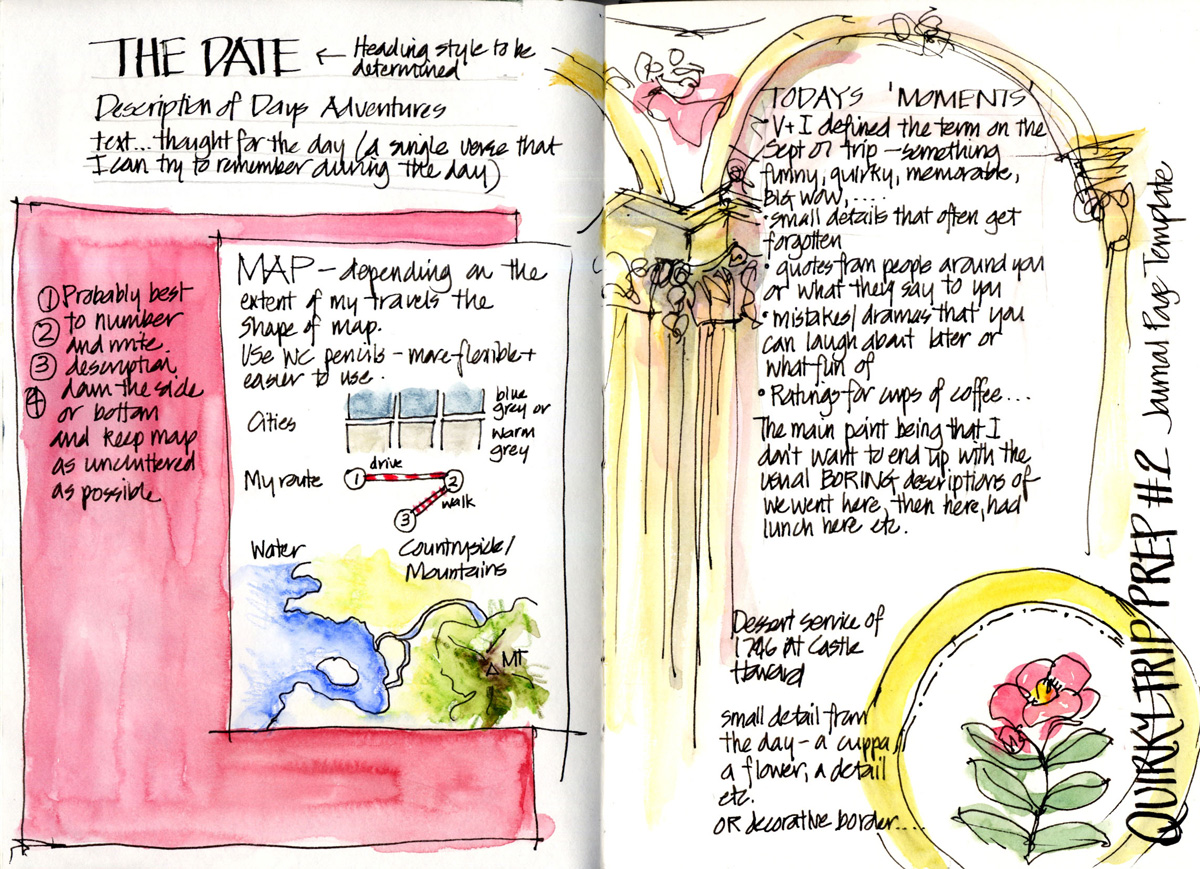 THE DATE ← Heading style to be
determined
Description of Days Adventures
text... thought for the day (a single verse that
I can try to remember during the day)
① Probably best
② to number
and write
③ description
④ down the side
or bottom
and keep map
as uncluttered
as possible
MAP - depending on the
extent of my travels the
shape of map.
USE WC pencils - more flexible +
easier to use.
Cities
blue
grey or
warm
grey
My route
① drive ②
walk
③
Water
Countryside/
Mountains
MT
TODAYS 'MOMENTS'
• V + I defined the term on the
Sept 07 trip - something
funny, quirky, memorable,
BIG WOW, .....
• small details that often get
forgotten
• quotes from people around you
or what they say to you
• mistakes/dramas that you
can laugh about later or
what fun of
• Ratings for cups of coffee ...
The main point being that I
don't want to end up with the
usual BORING descriptions of
we went here, then here, had
lunch here etc.
Dessert service of
1796 at Castle
Howard
small detail from
the day - a cuppa,
a flower, a detail
etc.
OR decorative border....
QUIRKY TRIP PREP #2 Journal Page Template